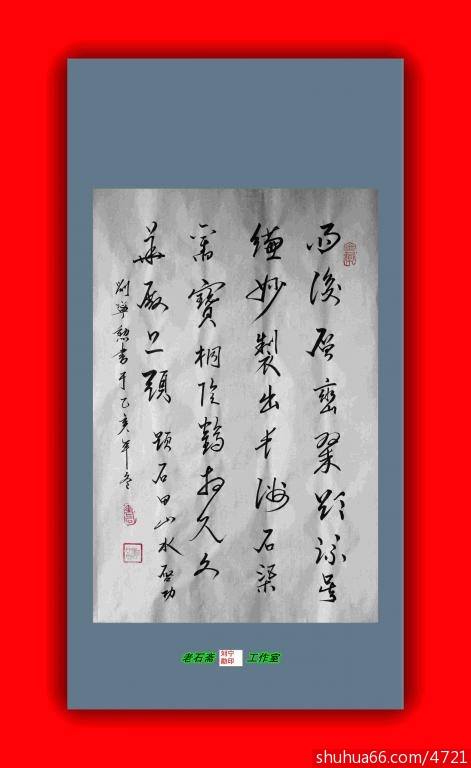 雨後層巒翠欲流吳
縑妙製出長洲石渠
舊寶桐陰鶴
華上頭 題石田山水 啓功
劉寧勲書于乙亥年冬
老石斋 刘宁勋印 工作室
shuhua66.com/4721